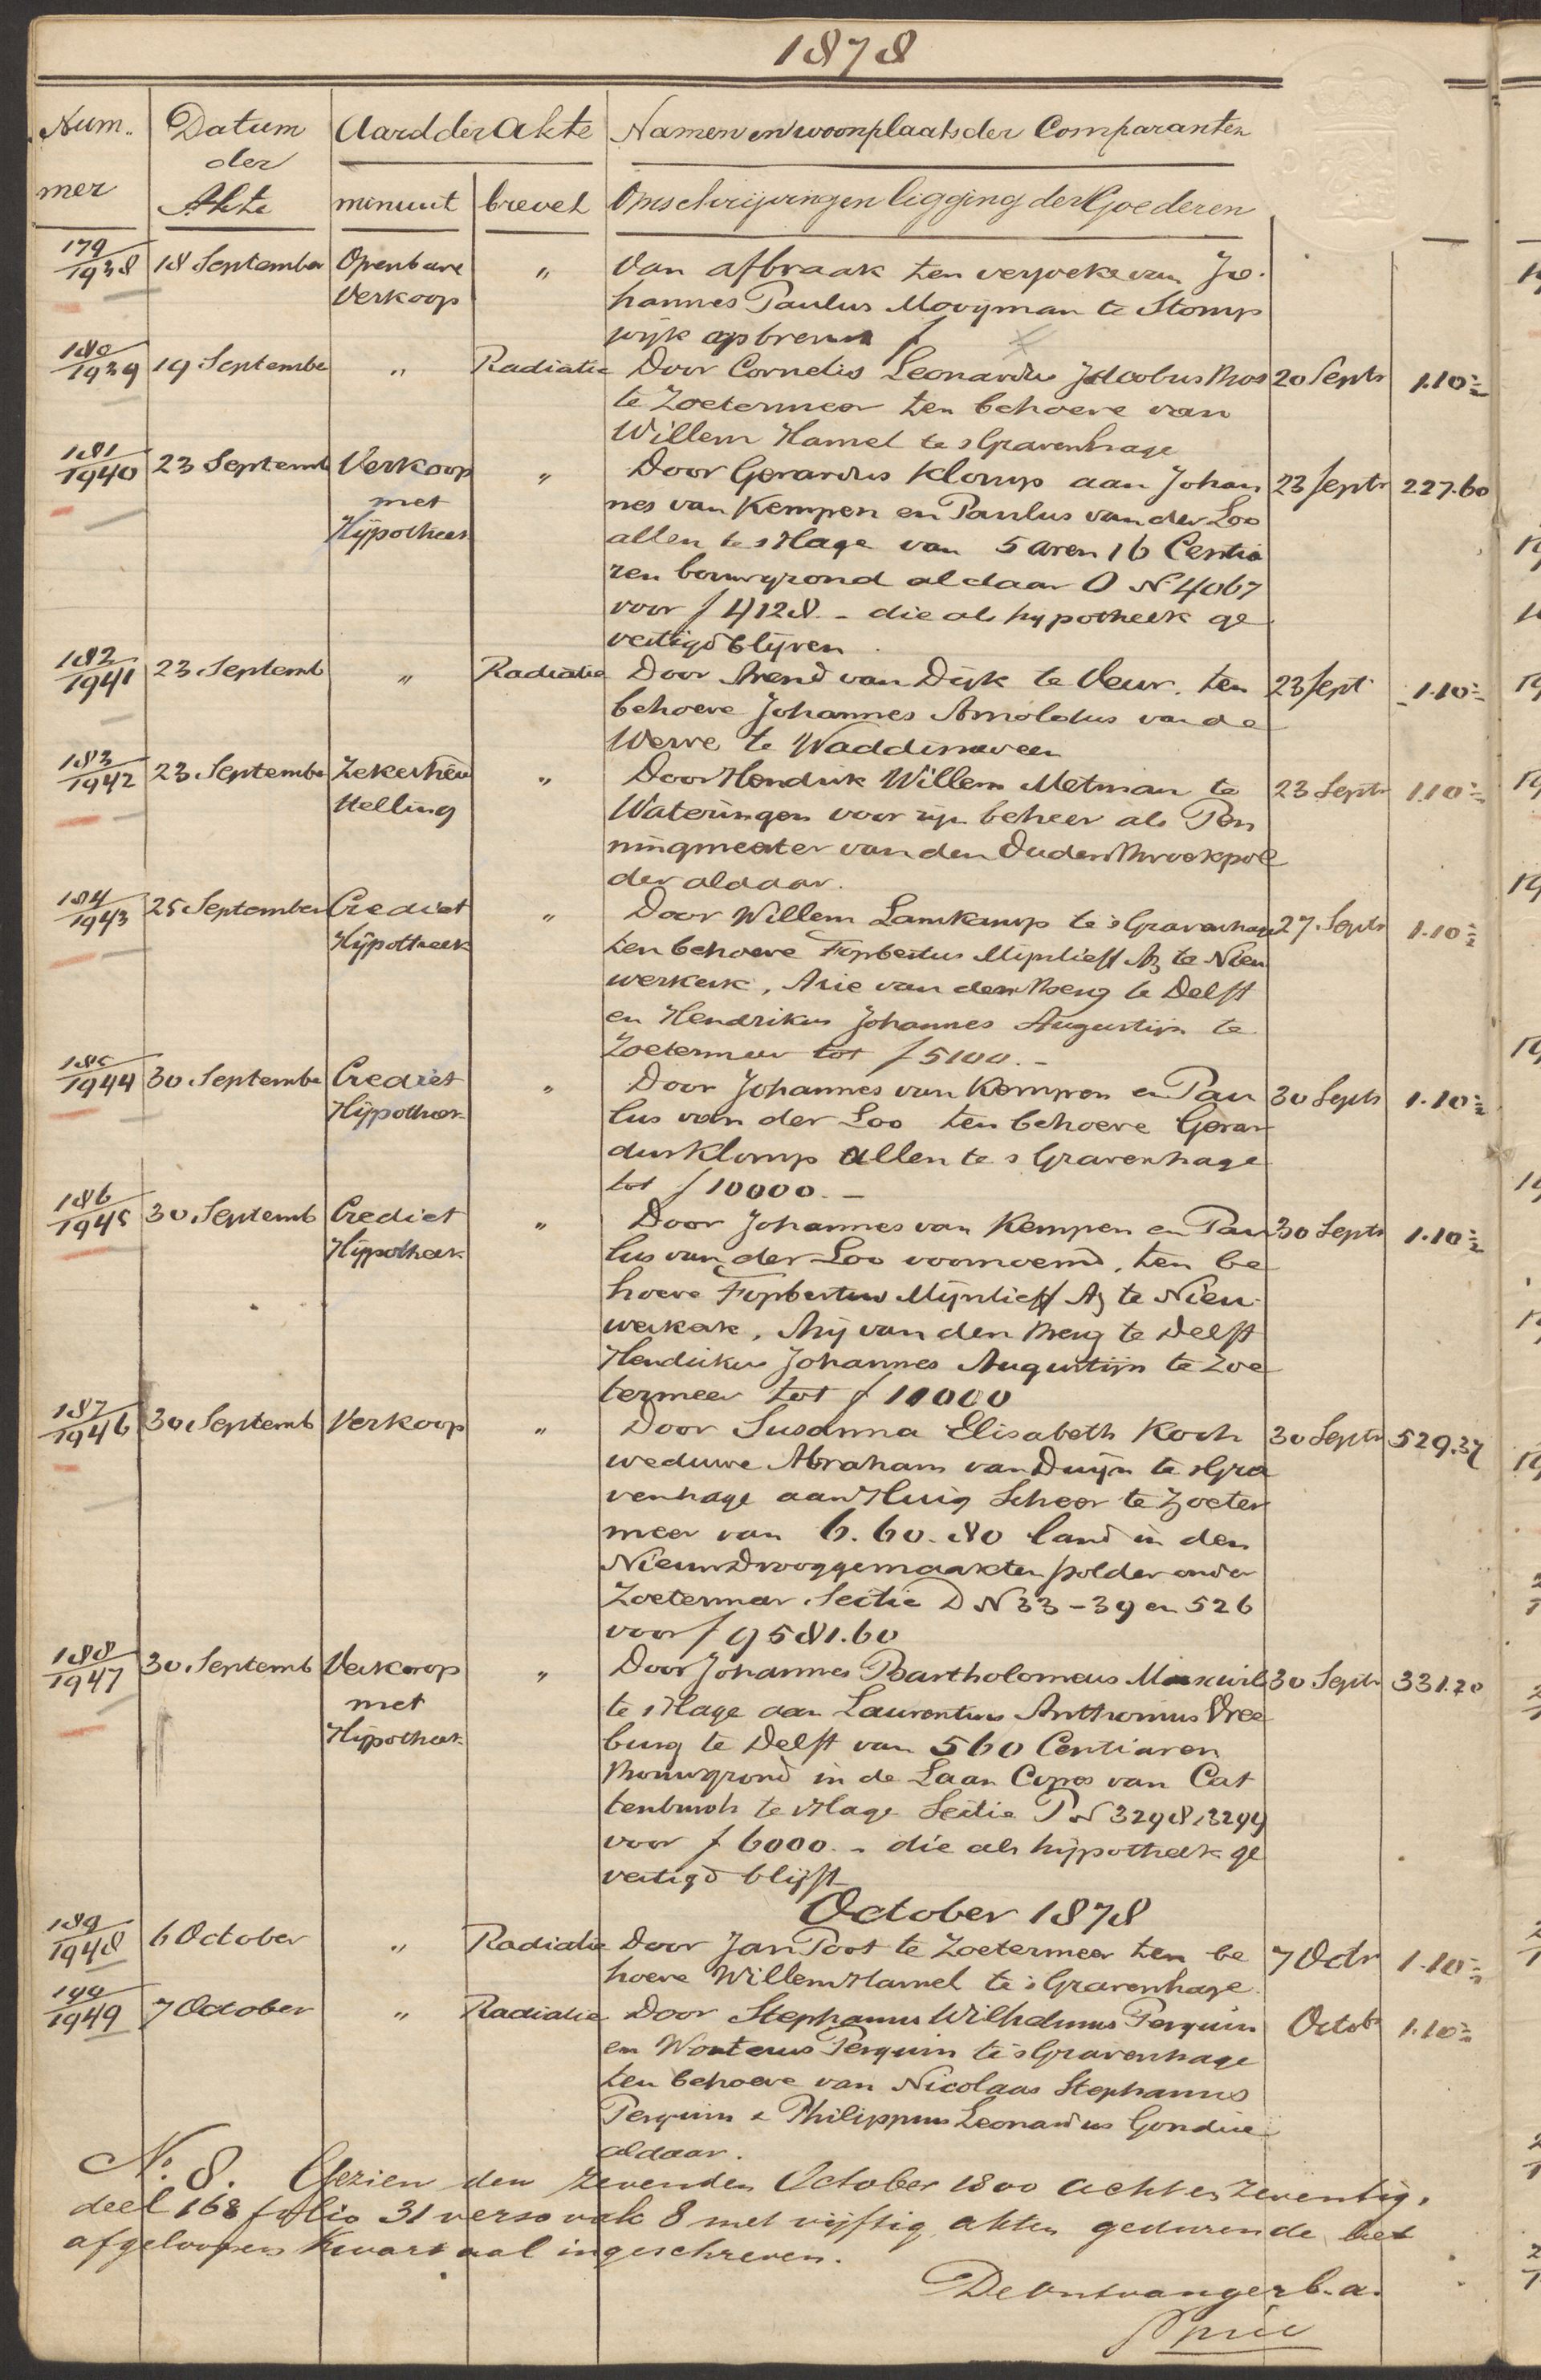 1878
Num.. Datum Aard der Akte Namen en woonplaats der Comparanten
der
mer Akte minuut brevet Omschrijving en ligging der Goederen
179/1938 18 September Openbare " Van afbraak ten verzoeke van Jo.
Verkoop hannes Paulus Mooyman te Stomp
wijk opbrengst f
180/1939 19 Septembe " Radiatie Door Cornelis Leonardus Jacobus Bos 20 Septr 1.10½
te Zoetermeer ten behoeve van
Willem Hamel te sGravenhage
181/1940 23 Septemb Verkoop " Door Gerardus Klomp aan Johan 23 Septr 227.60
met nes van Kempen en Paulus van der Loo
Hypotheek allen te sHage van 5 aren 16 Centia
ren bouwgrond aldaar O No 4067
voor f 4128.- die als hypotheek ge
vestigd blijven
182/1941 23 Septemb " Radiatie Door Arend van Dijk te Veur. ten 23 Sept 1.10½
behoeve Johannes Arnoldus van de
Werve te Waddinxveen
183/1942 23 Septembe Zekerheid " Door Hendrik Willem Metman te 23 Septr 1.10½
stelling Wateringen voor zijn beheer als Pen
ningmeester van den Ouden Broekpol
der aldaar.
184/1943 25 September Crediet " Door Willem Lamkamp te 's Gravenhage 27 Septr 1.10½
Hypotheek ten behoeve Fopbertus Mijnlieff Az te Nieu
werkerk, Arie van den Berg te Delft
en Hendrikus Johannes Augustijn te
Zoetermeer tot f 5100.-
185/1944 30 Septembe Crediet " Door Johannes van Kempen en Pau 30 Septr 1.10½
Hypotheek lus van der Loo ten behoeve Gerar
dus Klomp allen te s Gravenhage
tot f 10000.-
186/1945 30 Septemb Crediet " Door Johannes van Kempen en Pau 30 Septr 1.10½
Hypotheek lus van der Loo voornoemd, ten be
hoeve Fopbertus Mijnlieff Az te Nieu
werkerk, Arij van den Berg te Delft
Hendrikus Johannes Augustijn te Zoe
termeer tot f 11000
187/1946 30 Septemb Verkoop " Door Susanna Elisabeth Koch 30 Septr 529.37
weduwe Abraham van Duijn te sGra
venhage aan Huig Scheer te Zoeter
meer van 6.60.80 land in den
Nieuw Drooggemaakten polder onder
Zoetermeer Sectie D No 33-39 en 526
voor f 9581.60
188/1947 30 Septemb Verkoop " Door Johannes Bartholomeus 30 Septr 331.20
met te sHage aan Laurentius Anthonius Vree
Hypotheek burg te Delft van 560 Centiaren
Bouwgrond in de Laan Copes van Cat
tenburch te sHage Sectie P No 3298, 3299
voor f 6000.- die als hypotheek ge
vestigd blijft
October 1878
189/1948 6 October " Radiatie Door Jan Poot te Zoetermeer ten be 7 Octr 1.10½
hoeve Willem Hamel te 's Gravenhage.
190/1949 7 October " Radiatie Door Stephanus Wilhelmus Perquin Octob 1.10½
en Wouterus Perquin te s Gravenhage
ten behoeve van Nicolaas Stephanus
Perquin & Philippus Leonardus
aldaar.
No. 8. Gezien den zevenden October 1800 acht en zeventig.
deel 168 folio 31 verso vak 8 met vijftig akten gedurende het
afgeloopen Kwartaal ingeschreven.
De Ontvanger b.a.